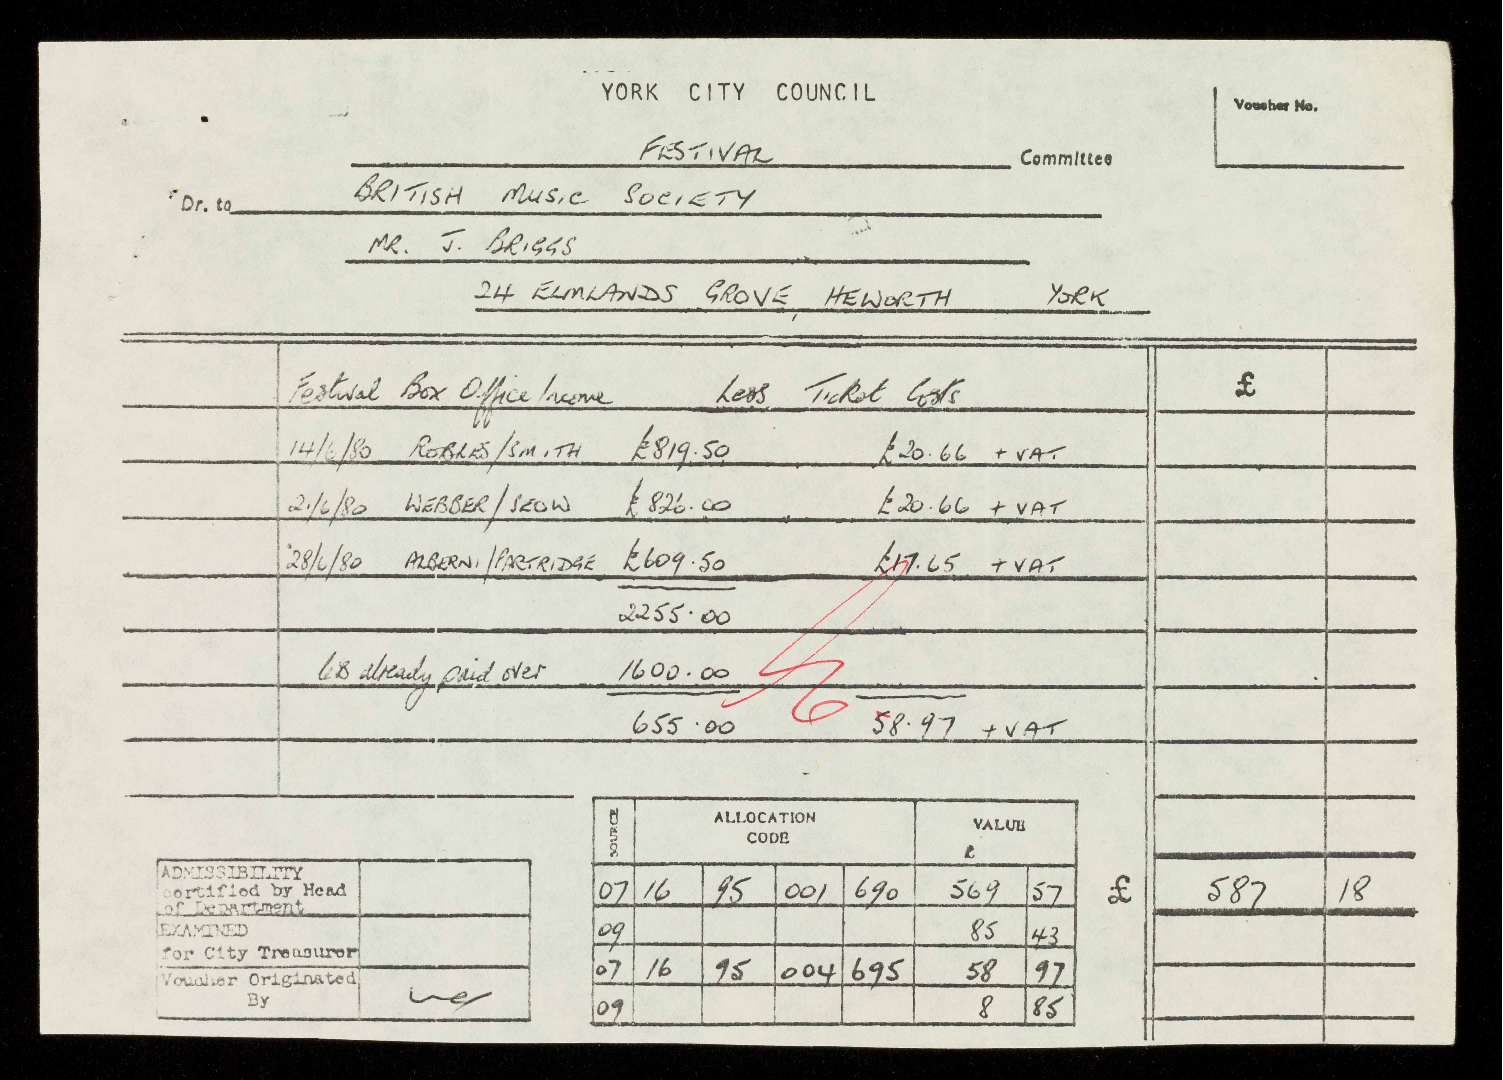 YORK CITY COUNCIL
Voucher No.
FESTIVAL Committee
Dr. to BRITISH MUSIC SOCIETY
MR. J. BRIGGS
24 ELMLANDS GROVE, HEWORTH YORK
Festival Box Office Income Less Ticket Costs £
14/6/80 ROBLES/SMITH £819.50 £20.66 + VAT
21/6/80 WEBBER/SEOW £826.00 £20.66 + VAT
28/6/80 ALBERNI/PARTRIDGE £609.50 £17.65 + VAT
2255.00
already paid over 1600.00
655.00 58.97 + VAT
SOURCE ALLOCATION CODE VALUE
£
07 16 95 001 690 569 57
09 85 43
07 16 95 004 695 58 97
09 8 85
£ 587 18
ADMISSIBILITY
certified by Head
of Department
EXAMINED
for City Treasurer
Voucher Originated
By